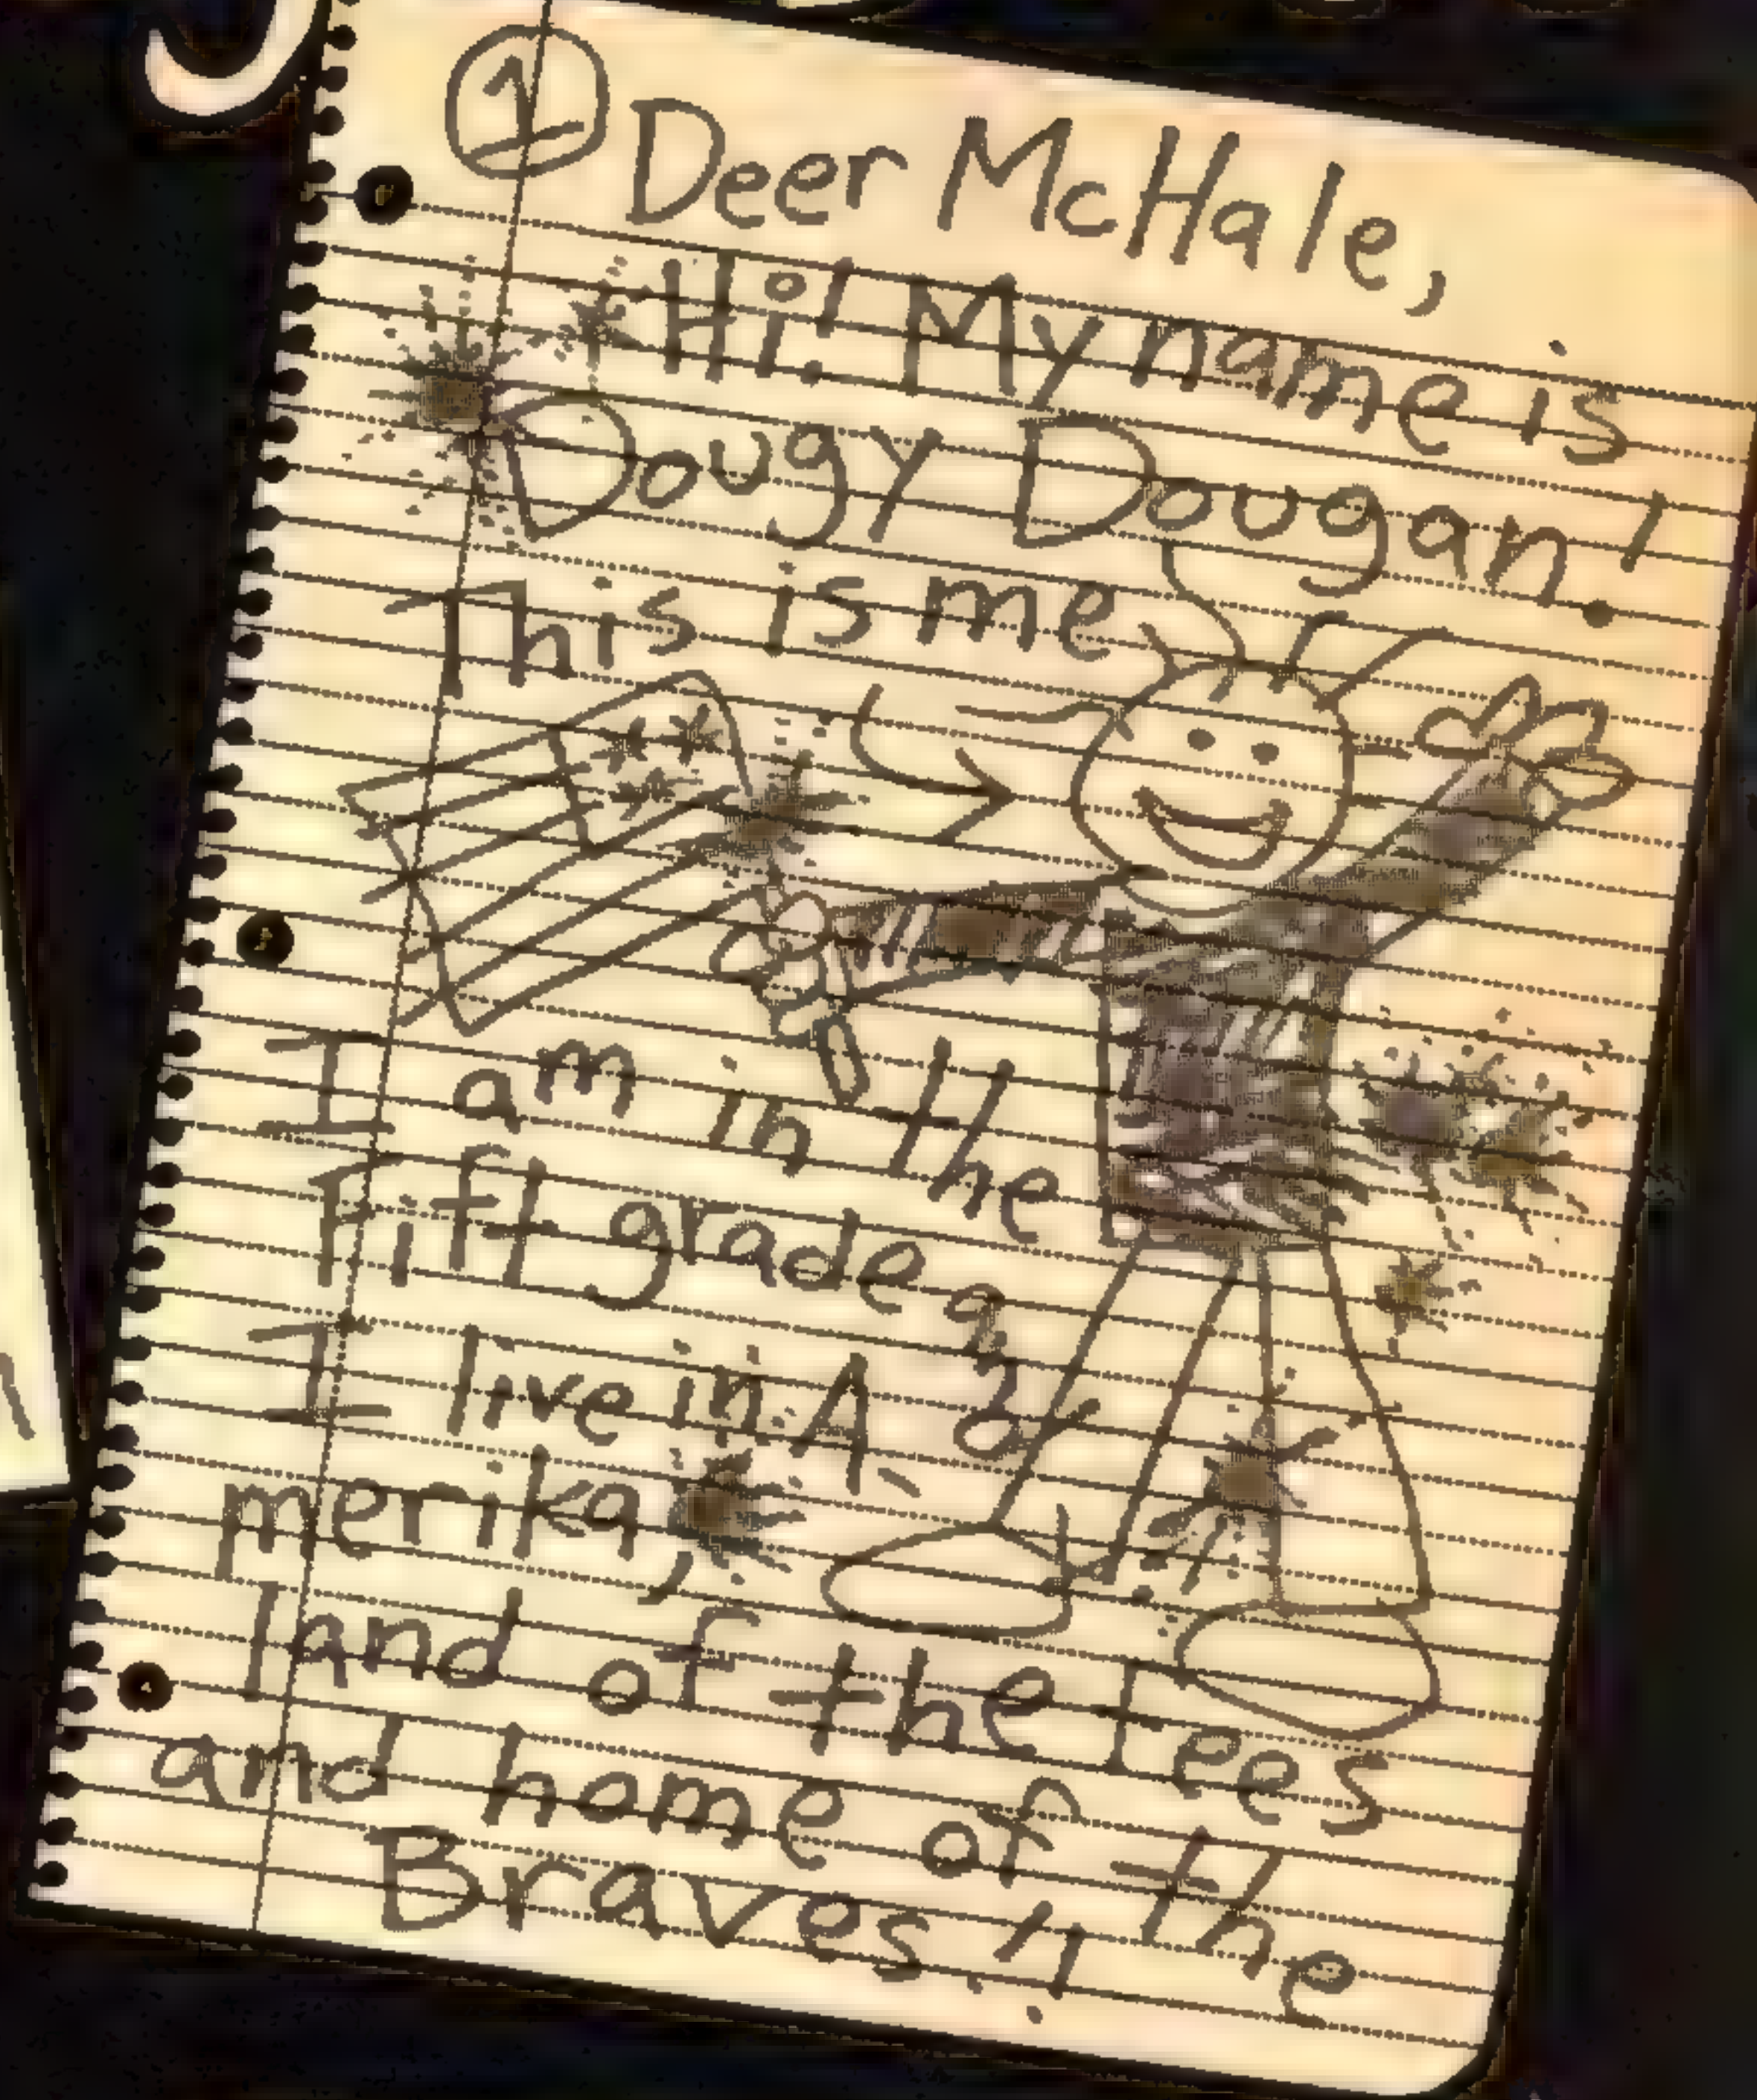 1
Deer McHale,
Hi! My name is
Dougy Dougan!
This is me
I am in the
Fift grade and
I live in A-
merika,
land of the fees
and home of the
Braves!!